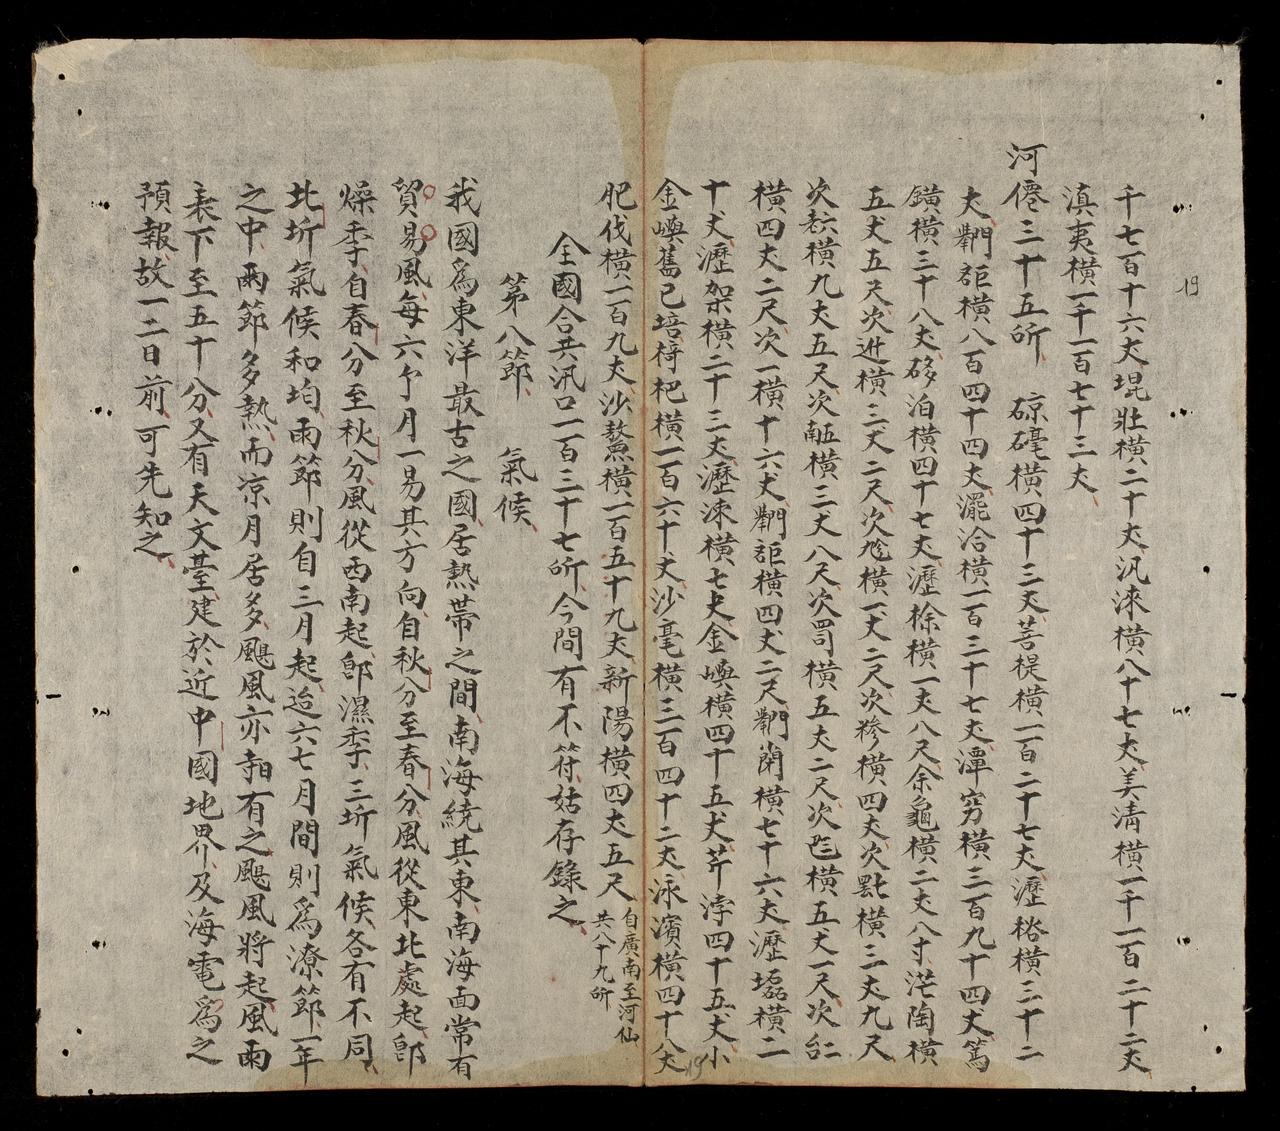 千七百十六丈堒壯橫二十丈汛淶橫八十七丈美清橫一千一百二十二丈
滇夷橫一千一百七十三丈
河僊三十五所　𥔲𥗜橫四十三丈菩提橫一百二十七丈瀝𣘃橫三十二
丈𨷯䛯橫八百四十四丈灑洽橫一百三十七丈潭窮橫三百九十四丈篤
鐄橫三十八丈𥓷泊橫四十七丈瀝徐橫一丈八尺余龜橫二丈八寸茫陶橫
五丈五尺次進橫三丈二尺次橫一丈二尺次橫四丈次橫三丈九尺
次橫九丈五尺次橫三丈八尺次罰橫五丈二尺次橫五丈一尺次
橫四丈二尺次一橫十六丈䛯橫四丈二尺橫七十六丈瀝磊橫二
十丈瀝架橫二十三丈瀝涑橫七丈金嶼橫四十五丈芹渟四十五丈小
金嶼舊已培桲杷橫一百六十丈沙毫橫三百四十二丈泳濱橫四十八丈
肥伐橫一百九丈沙鰲橫一百五十九丈新陽橫四丈五尺自廣南至河仙共八十九所
全國合共汛口一百三十七所今間有不符姑存錄之
第八節　氣候
我國爲東洋最古之國居熱帶之間南海繞其東南海面常有
貿易風每六个月一易其方向自秋分至春分風從東北處起卽
燥季自春分至秋分風從西南起卽濕季三圻氣候各有不同
北圻氣候和均雨節則自三月起迨六七月間則爲潦節一年
之中兩節多熱而凉月居多颶風亦時有之颶風將起風雨
表下至五十分又有天文臺建於近中國地界及海電爲之
預報故一二日前可先知之
19
19